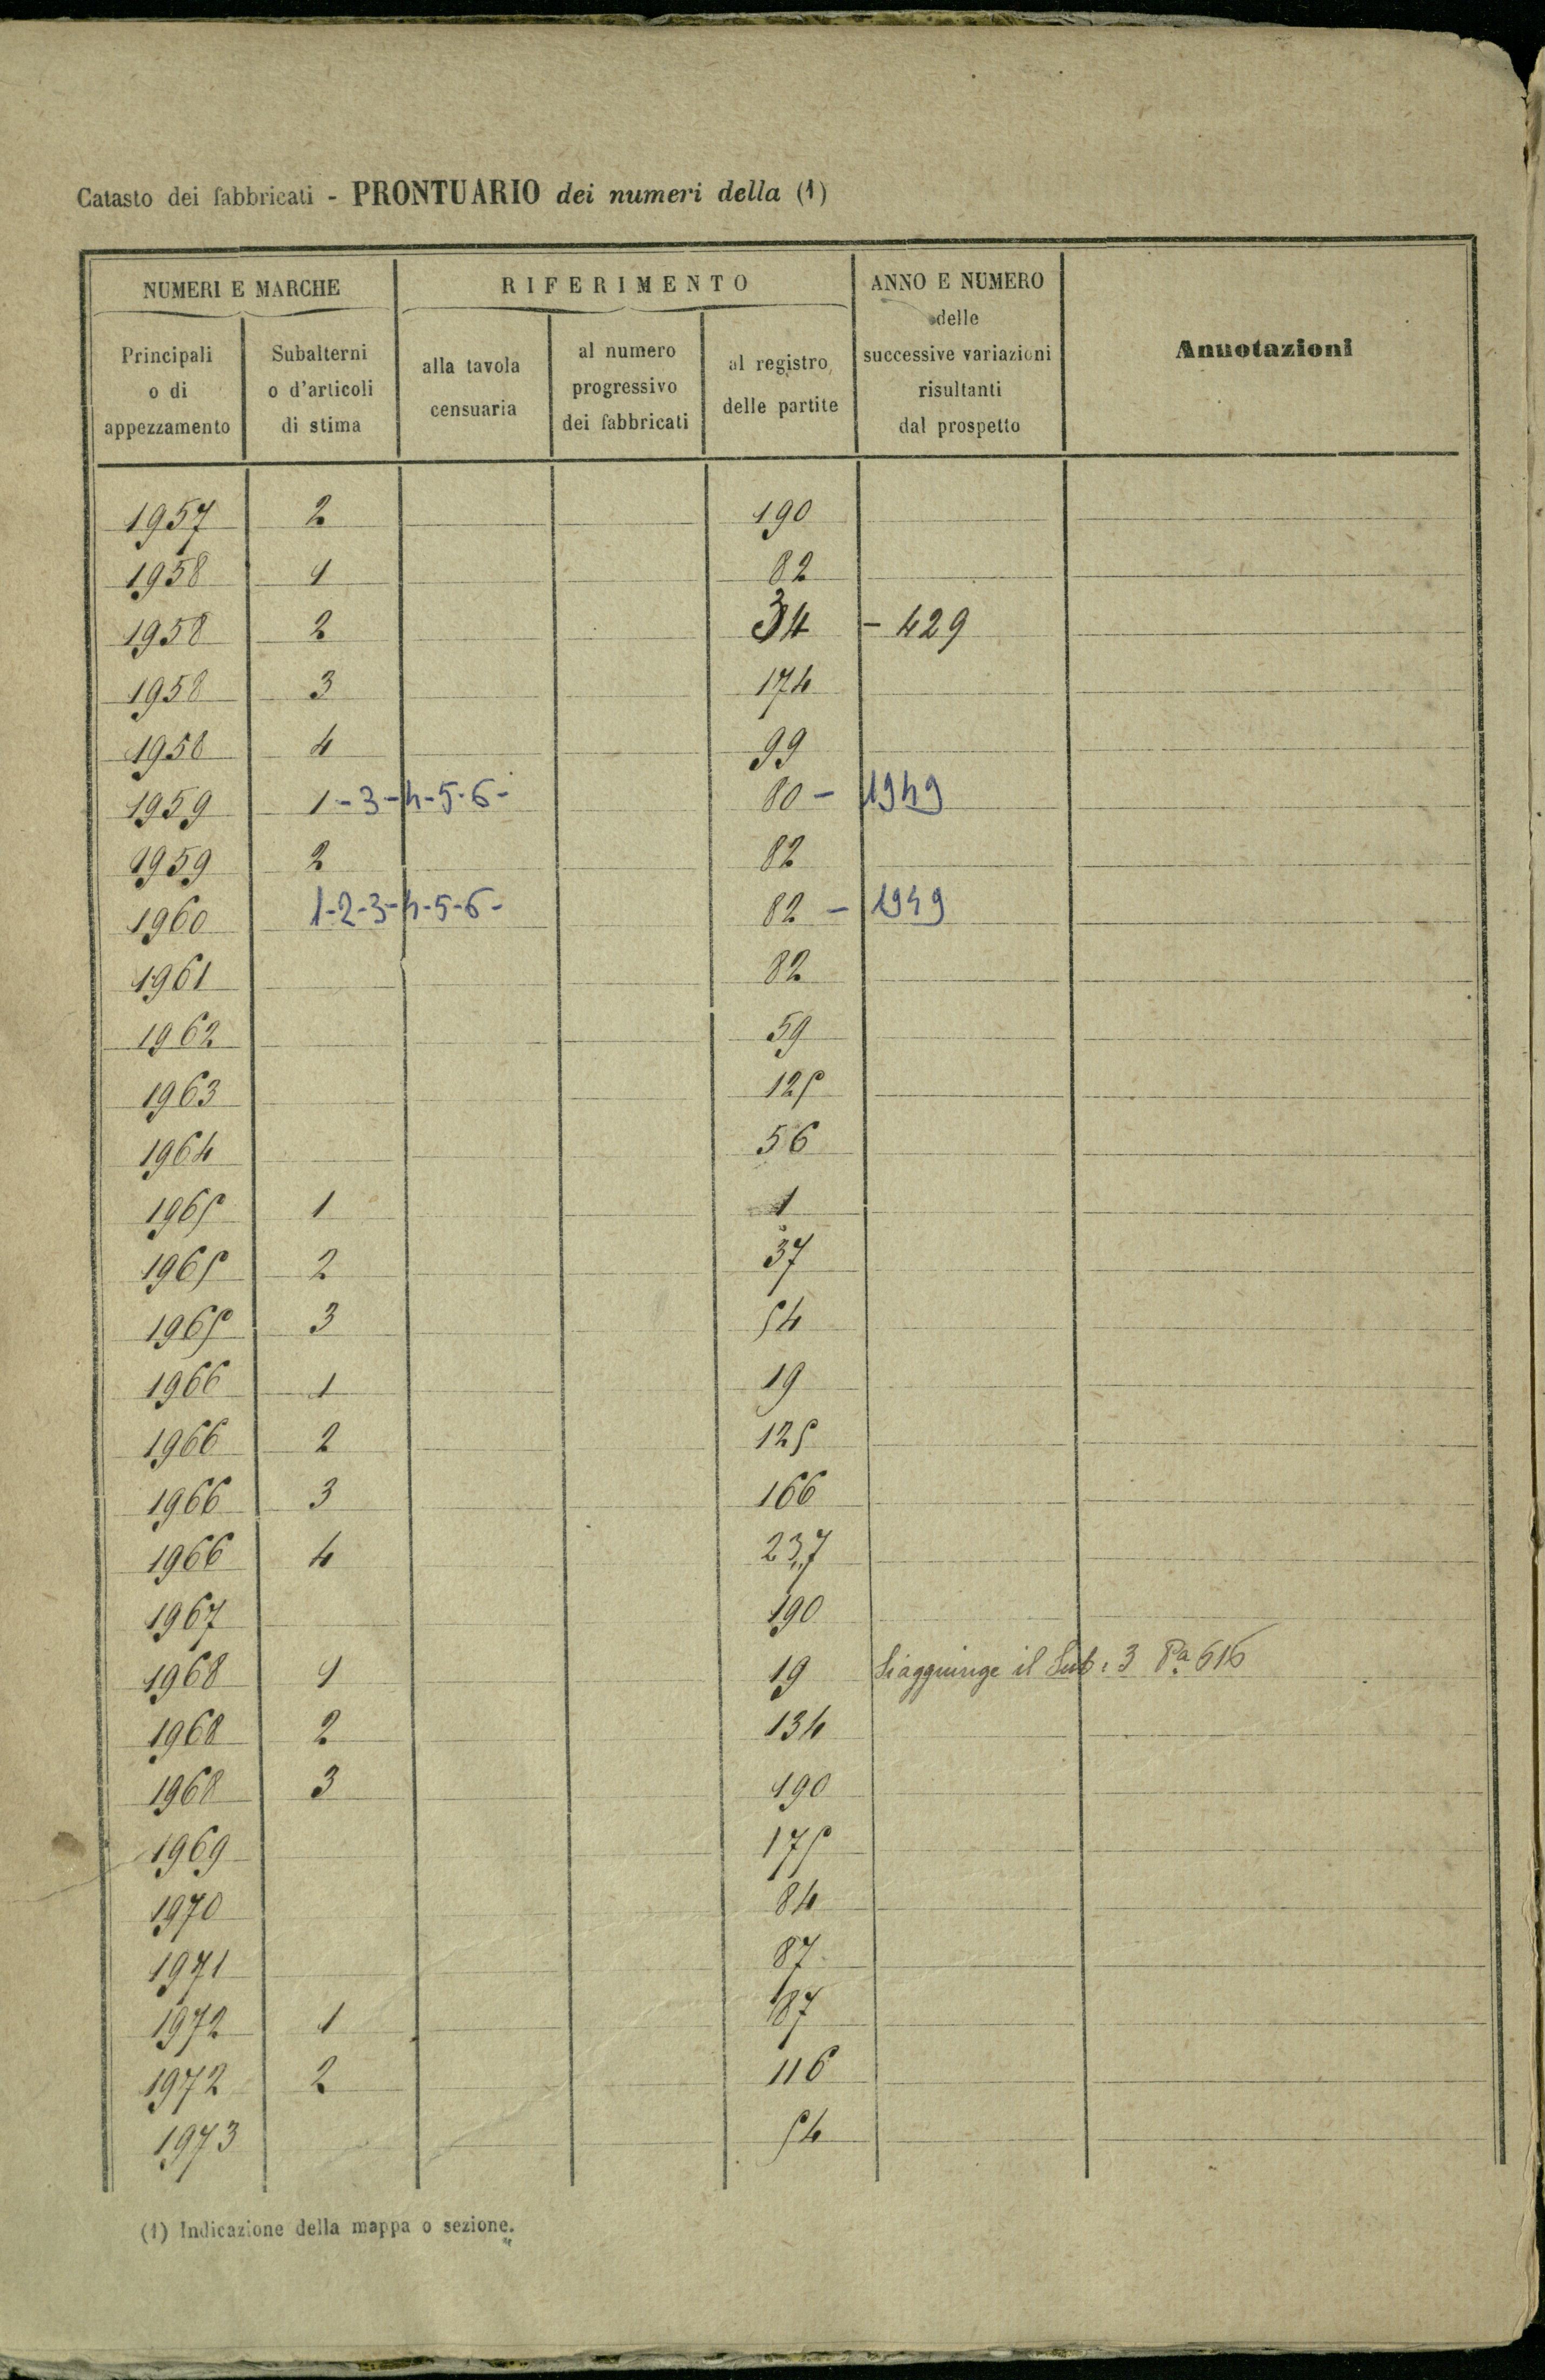 Catasto dei fabbricati - PRONTUARIO dei numeri della (1)
NUMERI E MARCHE
RIFERIMENTO
ANNO E NUMERO
delle
successive variazioni
risultanti
dal prospetto
Annotazioni
Principali
o di
appezzamento
Subalterni
o d'articoli
di stima
alla tavola
censuaria
al numero
progressivo
dei fabbricati
al registro
delle partite
1957 2 190
1958 1 82
1958 2 34 - 429
1958 3 174
1958 4 99
1959 1-3-4-5-6- 80 - 1949
1959 2 82
1960 1-2-3-4-5-6- 82 - 1949
1961 82
1962 59
1963 125
1964 56
1965 1 1
1965 2 37
1965 3 54
1966 1 19
1966 2 125
1966 3 166
1966 4 237
1967 190
1968 1 19 Si aggiunge il Sub: 3 Pa. 616
1968 2 134
1968 3 190
1969 175
1970 84
1971 87
1972 1 87
1972 2 116
1973 54
(1) Indicazione della mappa o sezione.